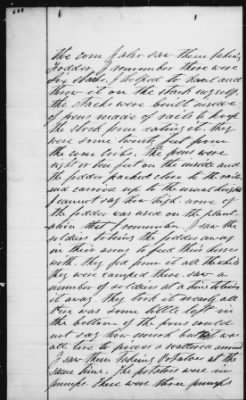 the corn I also saw them taking
fodder, I remember there were
big stacks. I helped to haul and
throw it on the stack myself.
The stacks were built inside
of pens made of rails to keep
the stock from eating it. they
were some twenty feet from
the corn cribs. The pens were
eight or ten feet on the inside and
the fodder packed close to the rails
and carried up to the usual height
I cannot say how high. none of
the fodder was used on the plant
ation that I remember. I saw the
soldiers toting the fodder away
in their arms to feed their horses
with. they fed from it all the while
they were camped there. saw a
number of soldiers at a time toting
it away. they took it nearly all
there was some little left in
the bottom of the pens could
not say how much but it was
all tore to pieces & scattered around
I saw them taking potatoes at the
same time. The potatoes were in
pumps there were three pumps